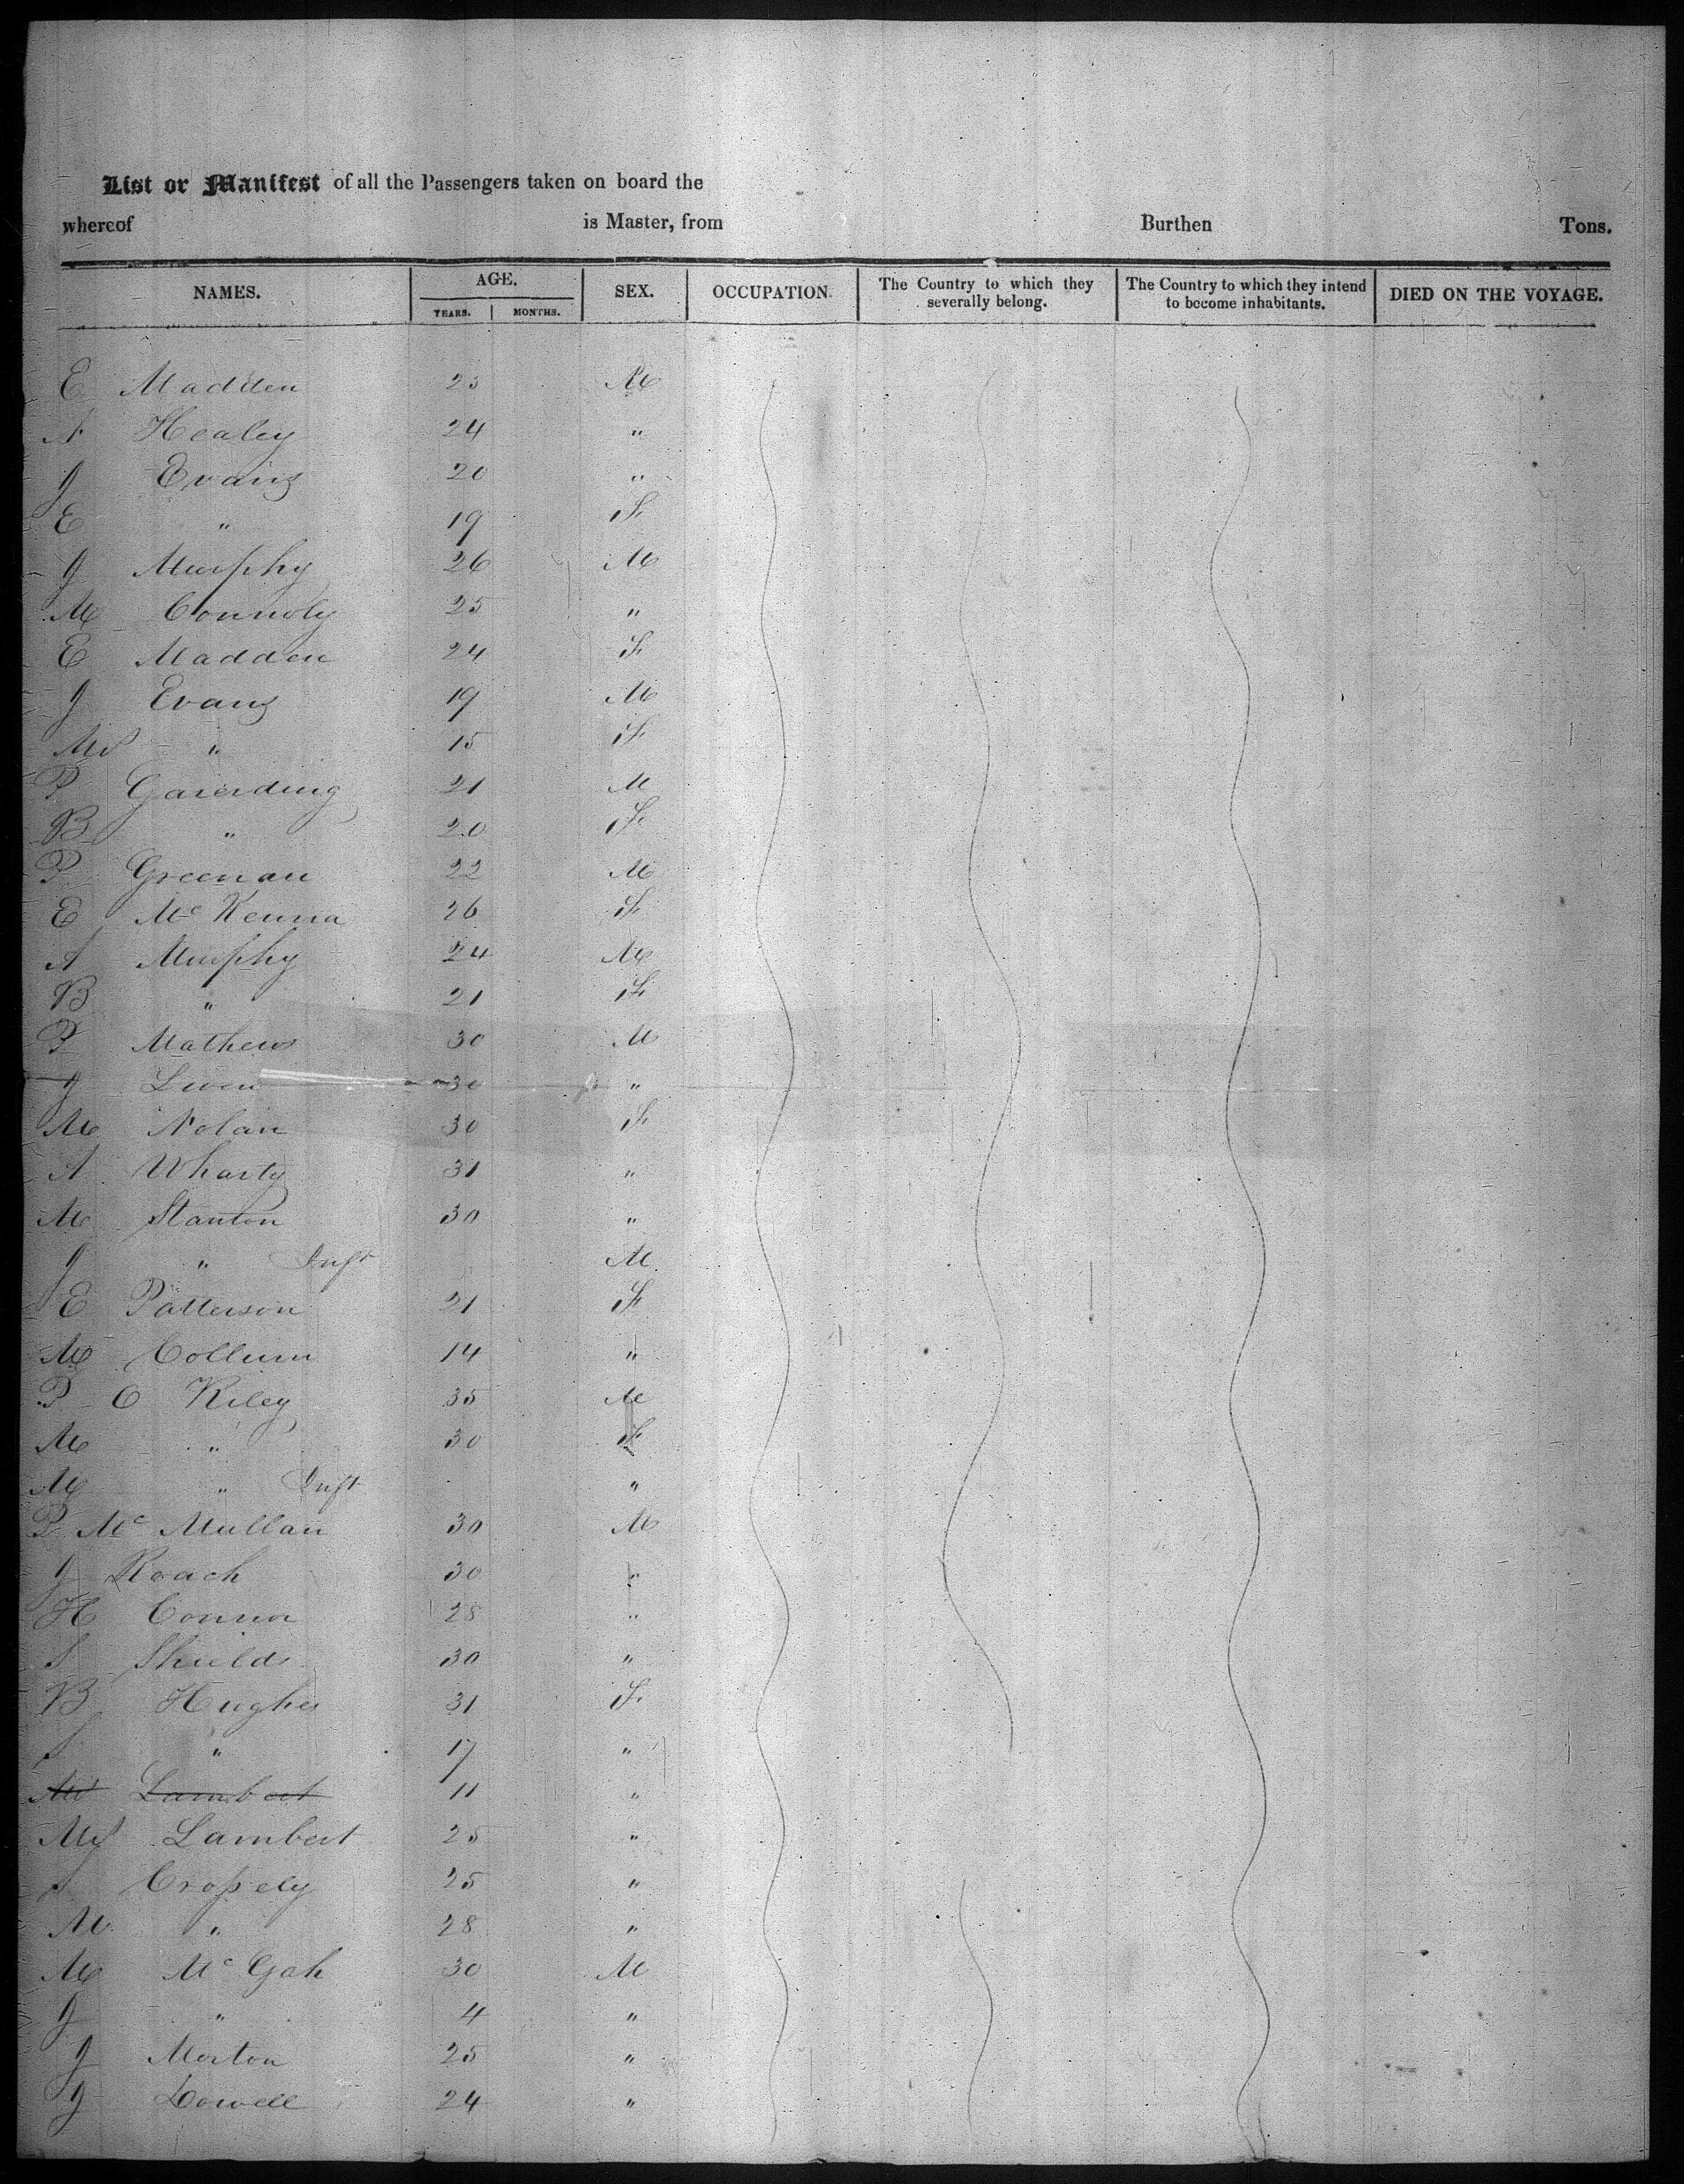 List or Manifest of all the Passengers taken on board the
whereof is Master, from Burthen Tons.
NAMES. AGE. SEX. OCCUPATION. The Country to which they severally belong. The Country to which they intend to become inhabitants. DIED ON THE VOYAGE.
YEARS. MONTHS.
E Madden 25 M
Healey 24 "
J Evans 20 "
E " 19 F
J Murphy 26 M
M Connoly 25 "
E Madden 24 F
J Evans 19 M
" 15 F
P 21 M
B " 20 F
P Greenan 22 M
E Mc Kenna 26 F
A Murphy 24 M
B " 21 F
P Mathews 30 M
J 30 "
M Nolan 30 F
A Wharty 31 "
M Stanton 30 "
J " Inft M
E Patterson 21 F
M Collum 14 "
P O Riley 35 M
M " 30 F
M " Inft "
P Mc Mullan 30 M
J Roach 30 "
H Connor 28 "
S Shields 30 "
B Hughes 31 F
S " 17 "
Lambert 11 "
My Lambert 25 "
Cropely 25 "
M " 28 "
M Mc Gah 30 M
J " 4 "
J Morton 25 "
J Lowell 24 "